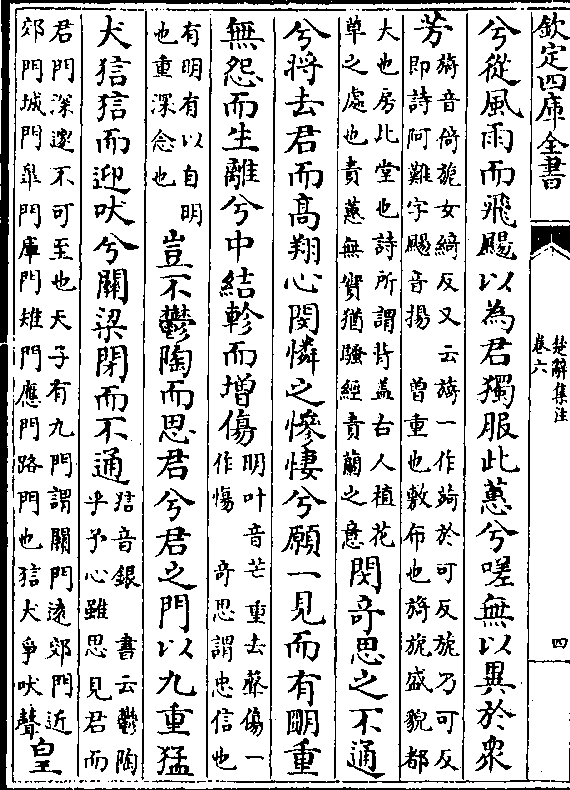 欽定四庫全書
楚辭集注
卷六
四
兮從風雨而飛颺以為君獨服此蕙兮嗟無以異於衆
芳
旖音倚旎女綺反又云旖一作於可反旎乃可反
即詩阿難字颺音揚　曾重也敷布也旖旎盛貌都
大也房北堂也詩所謂背蓋古人植花
草之處也責蕙無實猶騷經責蘭之意
閔奇思之不通
兮將去君而高翔心閔憐之慘悽兮願一見而有明重
無怨而生離兮中結軫而增傷
明叶音芒重去聲傷一
作慯　奇思謂忠信也
有明有以自明
也重深念也
豈不鬱陶而思君兮君之門以九重猛
犬狺狺而迎吠兮關梁閉而不通
狺音銀　書云鬱陶
乎予心雖思見君而
君門深邃不可至也天子有九門謂關門遠郊門近
郊門城門臯門庫門雉門應門路門也狺犬爭吠聲
皇